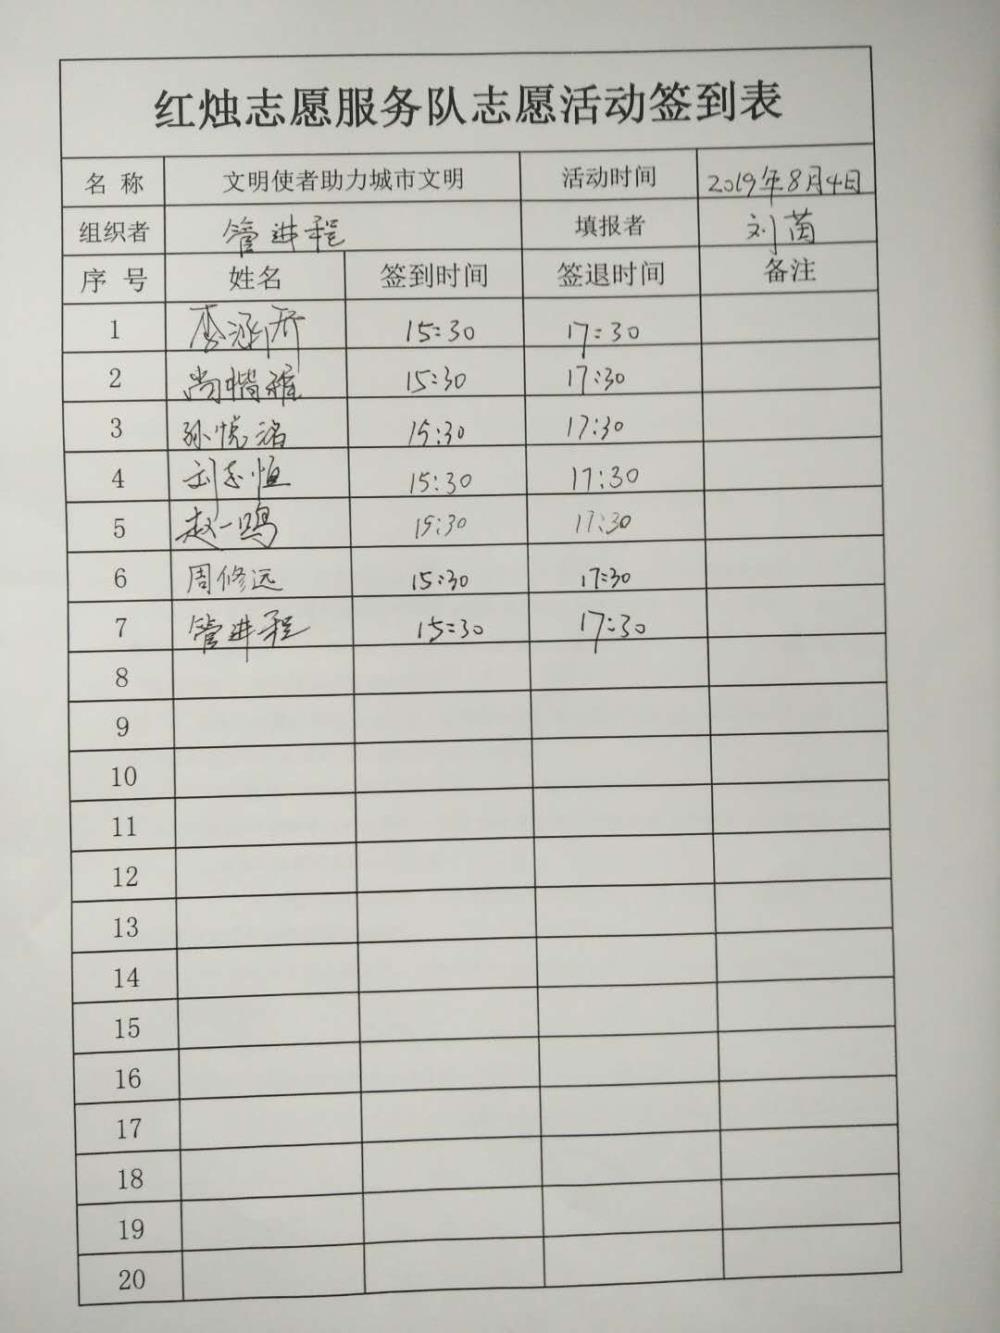 红烛志愿服务队志愿活动签到表
名 称 文明使者助力城市文明 活动时间 2019年8月4日
组织者 管进程 填报者 刘茵
序 号 姓名 签到时间 签退时间 备注
1 李涵乔 15:30 17:30
2 尚惜雅 15:30 17:30
3 孙悦洺 15:30 17:30
4 刘志恒 15:30 17:30
5 赵一鸣 15:30 17:30
6 周修远 15:30 17:30
7 管进程 15:30 17:30
8
9
10
11
12
13
14
15
16
17
18
19
20